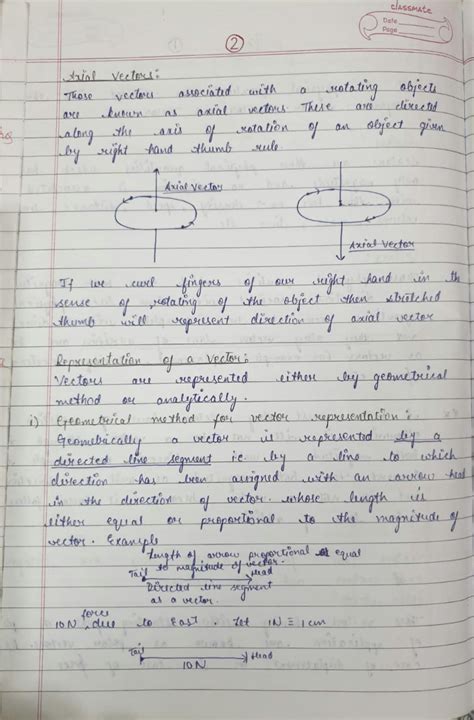 classmate
Date
Page
②
Axial Vectors:
Those vectors associated with a rotating objects
are known as axial vectors These are directed
along the axis of rotation of an object given
by right hand thumb rule.
Axial Vector
Axial Vector
If we curl fingers of our right hand in the
sense of rotating of the object then stretched
thumb will represent direction of axial vector
Representation of a Vector:
Vectors are represented either by geometrical
method or analytically.
i) Geometrical method for vector representation:
Geometrically a vector is represented by a
directed line segment ie. by a line to which
direction has been assigned with an arrow head
in the direction of vector. whose length is
either equal or proportional to the magnitude of
vector. Example
Length of arrow proportional equal
to magnitude of vector.
Tail Head
Directed line segment
as a vector.
force
10N due to East. Let 1N ≡ 1cm
Tail Head
10N